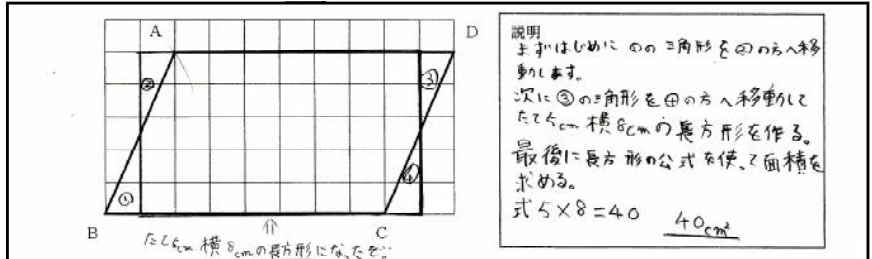 A
D
②
③
①
④
B
C
たて5cm 横8cmの長方形になったぞ!!
説明
まずはじめに①の三角形を②の方へ移
動します。
次に③の三角形を④の方へ移動して
たて5cm 横8cmの長方形を作る。
最後に長方形の公式を使って面積を
求める。
式 5×8=40
40cm²